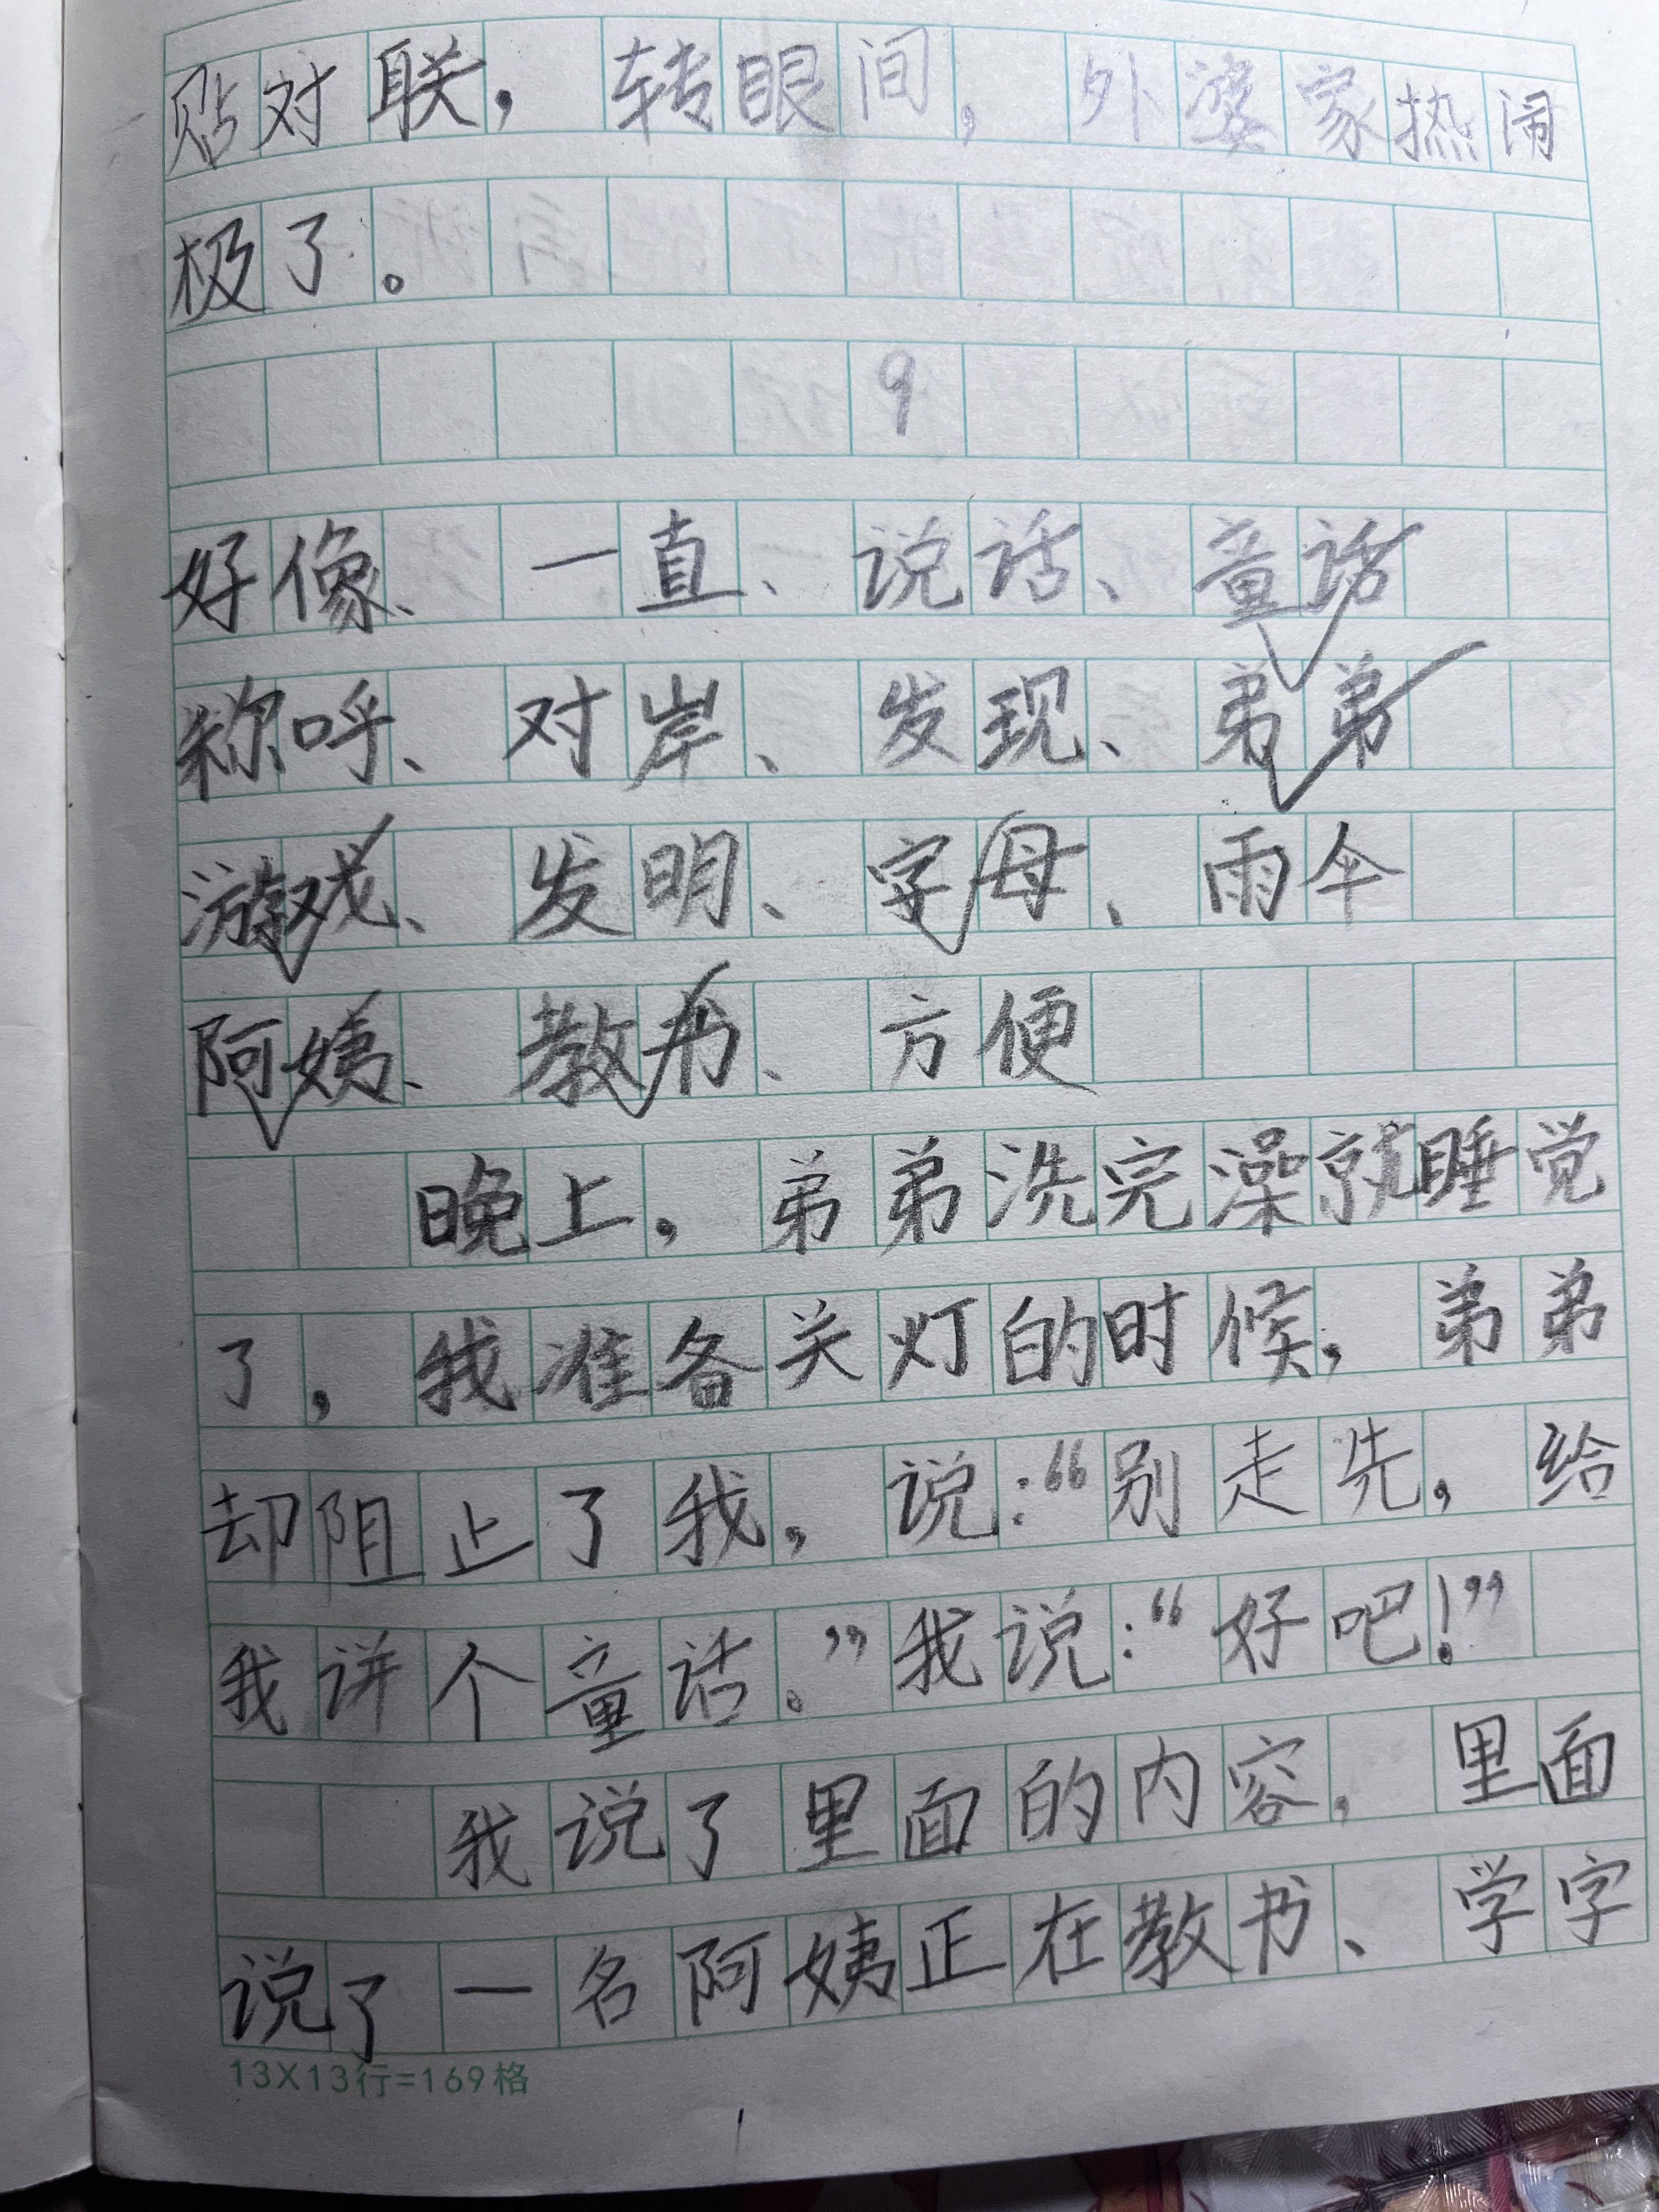 贴对联，转眼间，外婆家热闹
极了。
9
好像、一直、说话、童话
称呼、对岸、发现、弟弟
游戏、发明、字母、雨伞
阿姨、教书、方便
晚上，弟弟洗完澡就睡觉
了，我准备关灯的时候，弟弟
却阻止了我，说：“别走先，给
我讲个童话。”我说：“好吧！”
我说了里面的内容，里面
说了一名阿姨正在教书、学字
13X13行=169格